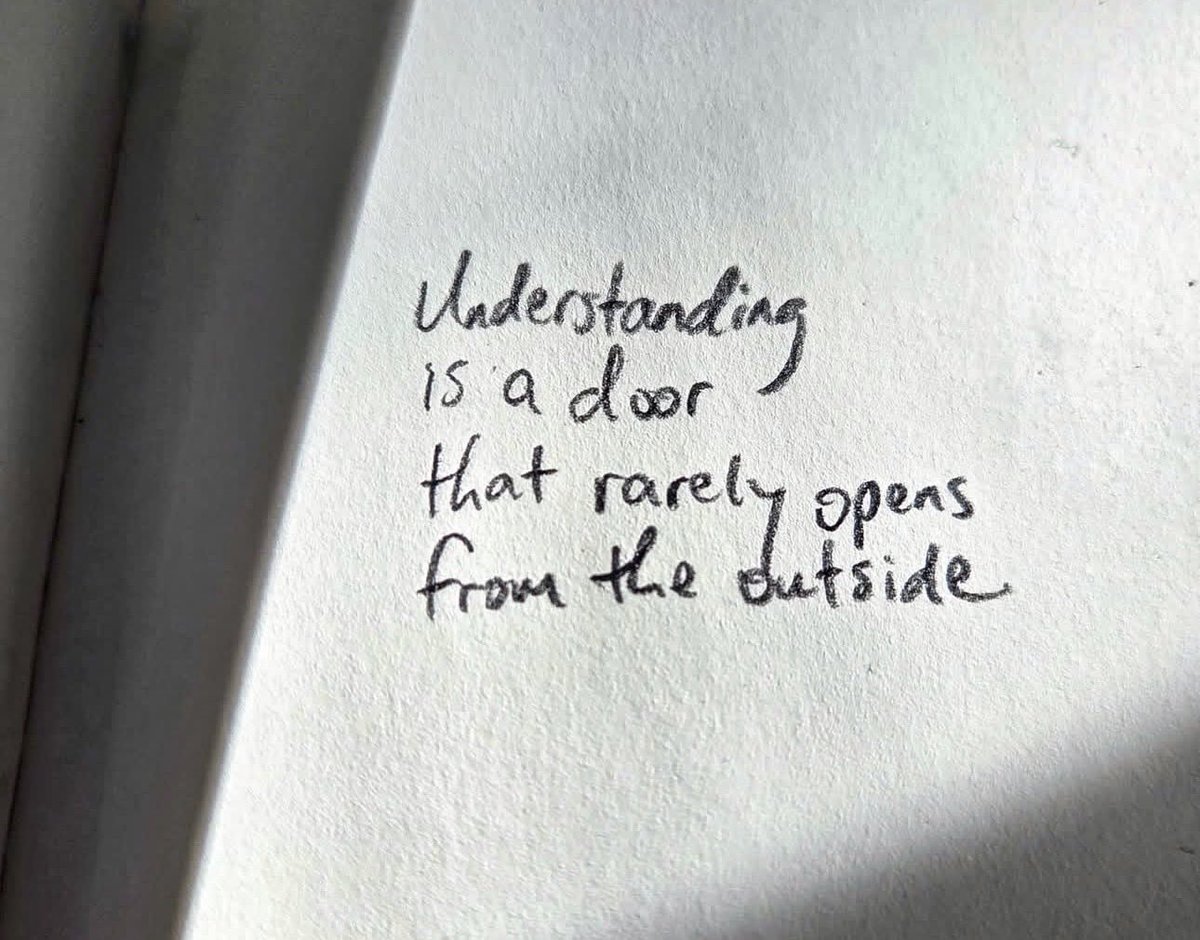 Understanding
is a door
that rarely opens
from the outside